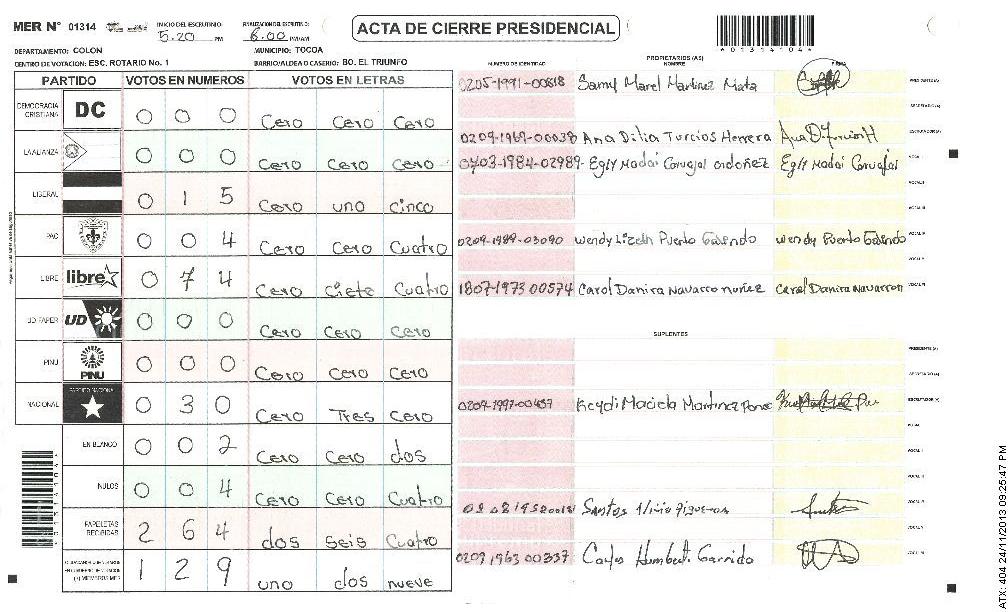 MER N° 01314
INICIO DEL ESCRUTINIO
5.20 PM
FINALIZACION ESCRUTINIO:
6.00 PM/AM
ACTA DE CIERRE PRESIDENCIAL
DEPARTAMENTO: COLON
MUNICIPIO: TOCOA
CENTRO DE VOTACION: ESC. ROTARIO No. 1
BARRIO/ALDEA O CASERIO: BO. EL TRIUNFO
PARTIDO VOTOS EN NUMEROS VOTOS EN LETRAS
DEMOCRACIA CRISTIANA DC 0 0 0 Cero Cero Cero
LA ALIANZA 0 0 0 Cero Cero Cero
LIBERAL 0 1 5 Cero uno cinco
PAC 0 0 4 Cero Cero Cuatro
LIBRE libre 0 7 4 Cero Ciete Cuatro
UD FAPER UD 0 0 0 Cero Cero Cero
PINU PINU 0 0 0 Cero Cero Cero
NACIONAL PARTIDO NACIONAL 0 3 0 Cero Tres Cero
EN BLANCO 0 0 2 Cero Cero dos
NULOS 0 0 4 Cero Cero Cuatro
PAPELETAS RECIBIDAS 2 6 4 dos seis Cuatro
1 2 9 uno dos nueve
PROPIETARIOS (AS)
NUMERO DE IDENTIDAD NOMBRE FIRMA
0205-1991-00818 Samy Marel Martinez Mata
0209-1969-00038 Ana Dilia Turcios Herrera Ana D. Turcios H
0703-1984-02989 Egly Madai Carvajal ordoñez Egly Madai Carvajal
0209-1989-03090 Wendy Lizeth Puerto Galindo Wendy Puerto Galindo
1807-1973 00574 Carol Danira Navarro nuñez Carol Danira Navarro n
SUPLENTES
0209-1997-00457 Keydi Maciela Martinez Ponce
Santos
0209 1963 00337 Carlos Humberto Garrido
ATX: 404 24/11/2013 09:25:47 PM